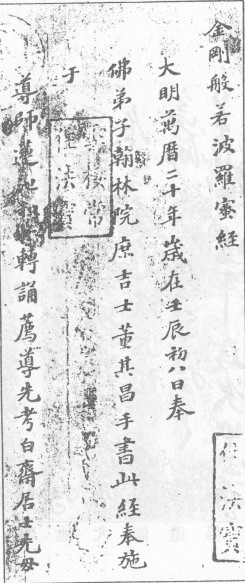 金剛般若波羅蜜經
大明萬曆二十年歲在壬辰初八日奉
佛弟子翰林院庶吉士董其昌手書此經奉施
于
導師蓮池 轉誦薦導先考白齋居士先母
法寶